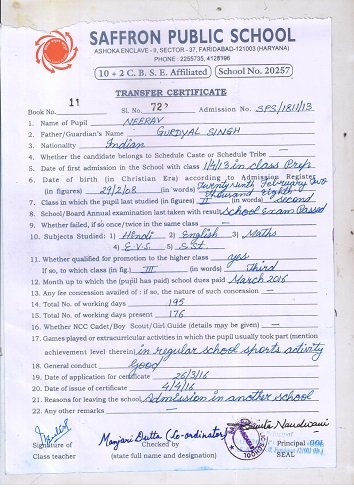 SAFFRON PUBLIC SCHOOL
ASHOKA ENCLAVE - II, SECTOR - 37, FARIDABAD-121003 (HARYANA)
PHONE : 2255735, 4128196
10 + 2 C. B. S. E. Affiliated School No. 20257
TRANSFER CERTIFICATE
Book No. 11 Sl. No. 722 Admission No. SPS/1811/13
1. Name of Pupil NEERAV
2. Father/Guardian's Name GURDYAL SINGH
3. Nationality Indian
4. Whether the candidate belongs to Schedule Caste or Schedule Tribe —
5. Date of first admission in the School with class 1/4/13 in class Prep.
6. Date of birth (in Christian Era) according to Admission Register
(in figures) 29/2/08 (in words) Twenty Ninth February Two Thousand eighth
7. Class in which the pupil last studied (in figures) II (in words) Second
8. School/Board Annual examination last taken with result School Exam Passed
9. Whether failed, if so once/twice in the same class —
10. Subjects Studied : 1) Hindi 2) English 3) Maths
4) E.V.S. 5) S.St.
11. Whether qualified for promotion to the higher class yes
If so, to which class (in fig.) III (in words) Third
12. Month up to which the (pupil has paid) school dues paid March 2016
13. Any fee concession availed of : if so, the nature of such concession —
14. Total No. of working days 195
15. Total No. of working days present 176
16. Whether NCC Cadet/Boy Scout/Girl Guide (details may be given) —
17. Games played or extracurricular activities in which the pupil usually took part (mention
achievement level therein) in regular school sports activity
18. General conduct Good
19. Date of application for certificate 26/3/16
20. Date of issue of certificate 4/4/16
21. Reasons for leaving the school Admission in another school
22. Any other remarks —
Manjari Dutta (Co-ordinator)
Signature of Checked by Principal
Class teacher (state full name and designation) SEAL